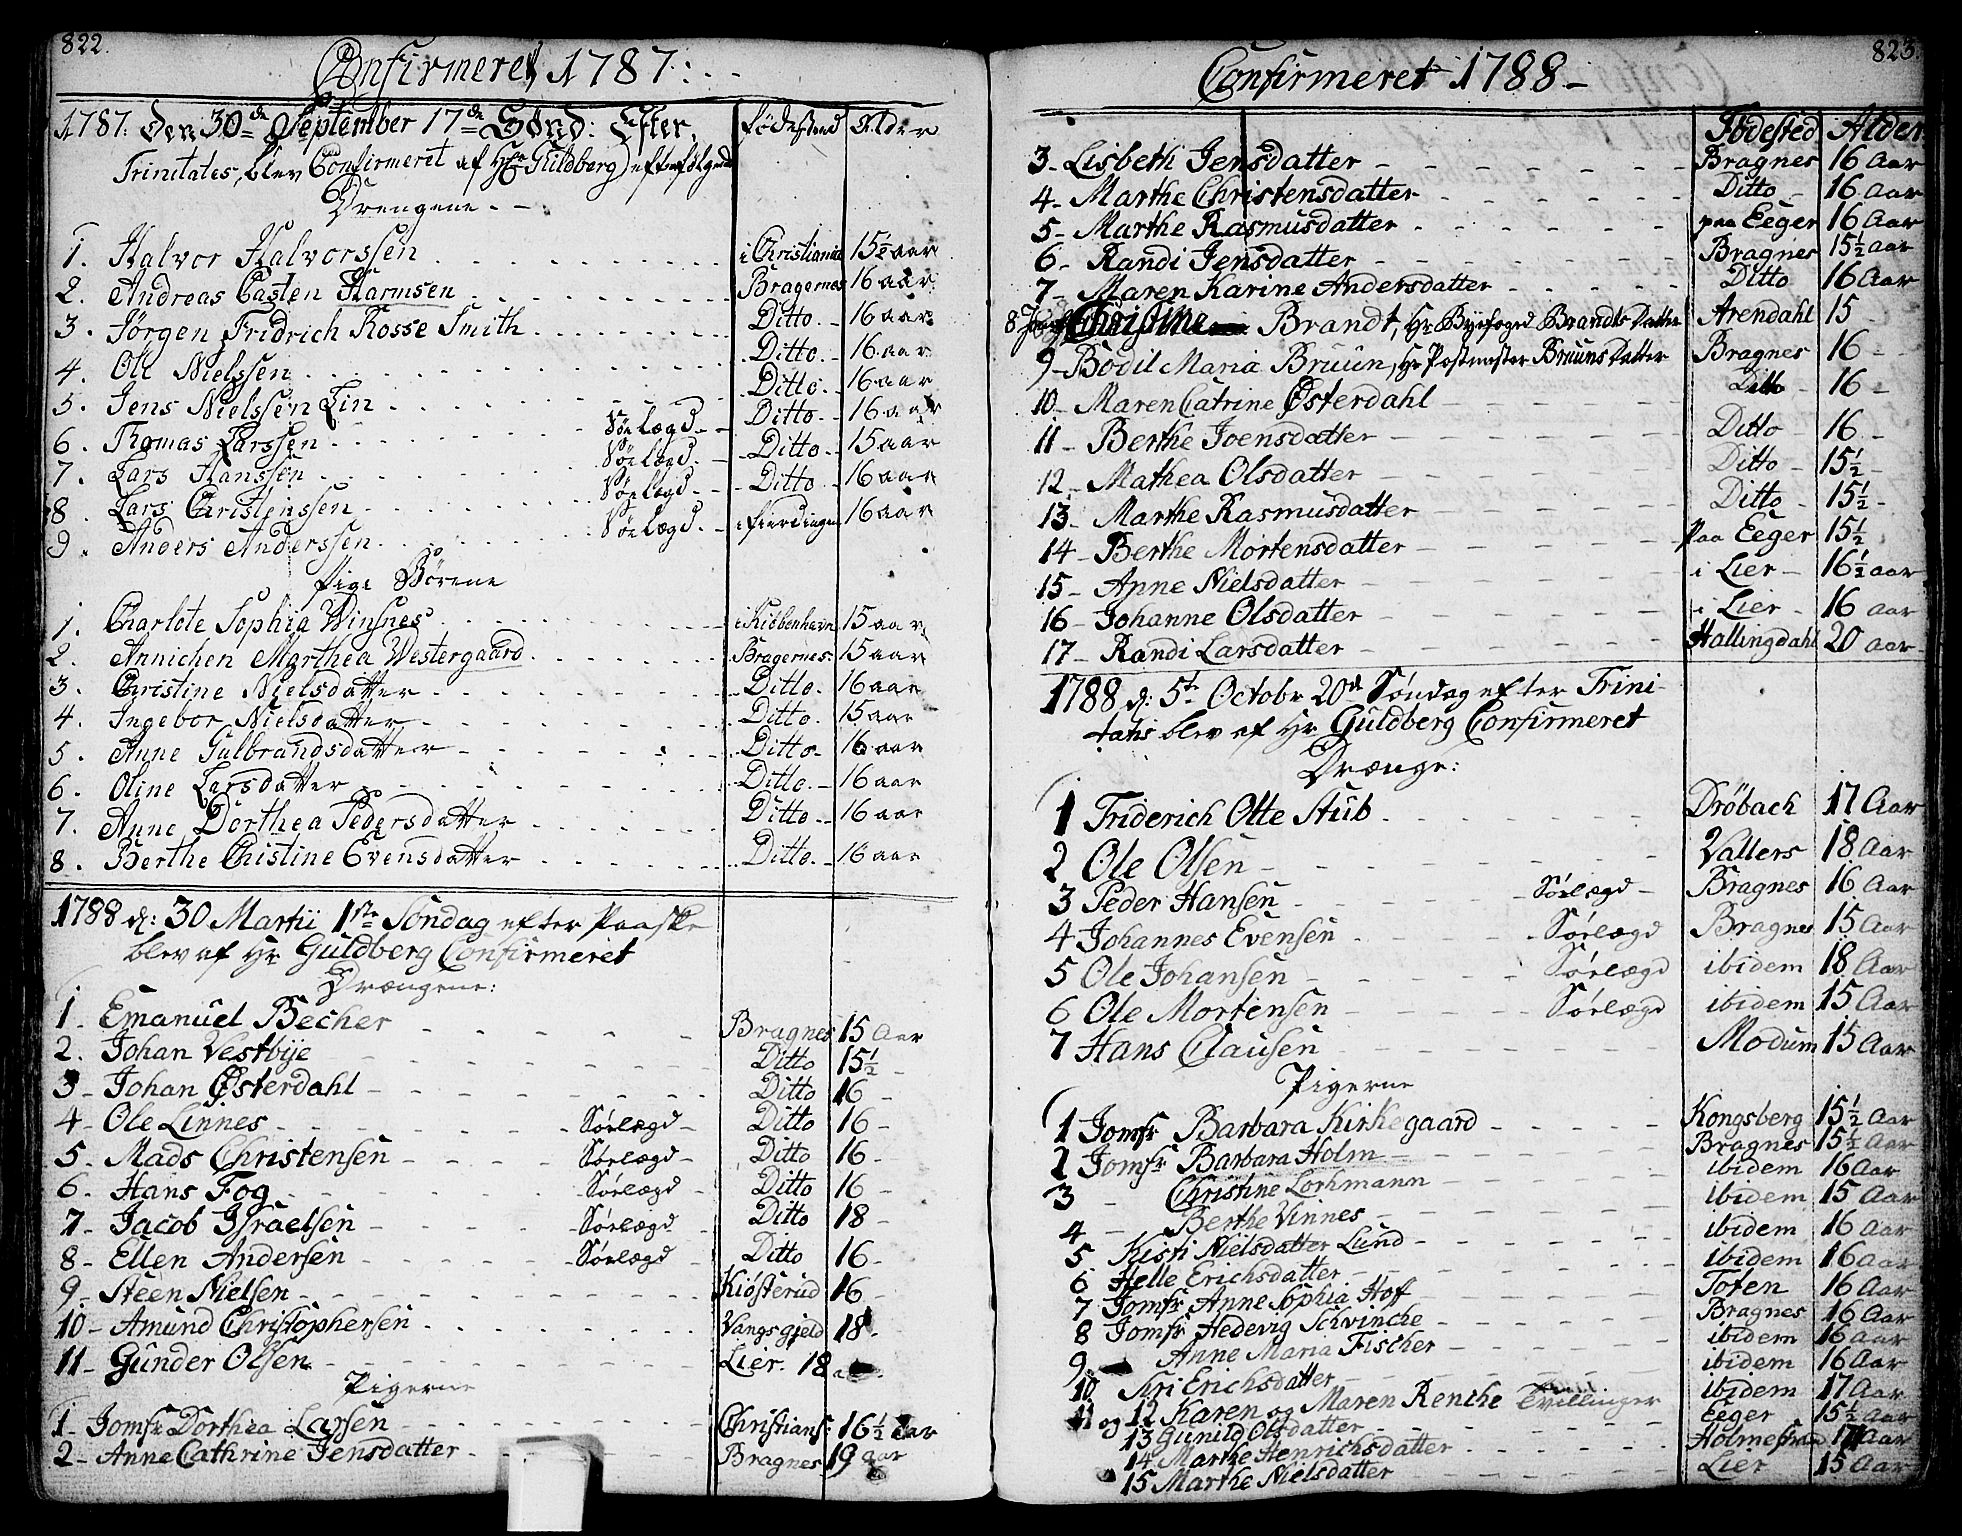 822.
Confirmeret 1787:
1787. den 30de September 17de Sønd: Efter. Födestæd Alder
Trinitates, blev Confirmeret af Hr Guldberg efterfølgende
Drengene.
1. Halvor Halvorssen i Christiania 15½ aar
2. Andreas Casten Harmsen Bragernes 16 aar
3. Jörgen Fridrich Rosse Smith Ditto. 16 aar
4. Ole Nielssen Ditto. 16 aar
5. Jens Nielssen Lin Ditto. 16 aar
6. Thomas Larssen Söe lægd. Ditto. 16 aar
7. Lars Hanssen Söe lægd. Ditto. 15 aar
8. Lars Christenssen Söe lægd Ditto. 16 aar
9. Anders Anderssen Söe lægd. i fierdingen 16 aar
Pige Börene
1. Charlote Sophia Winsnes i Kiöbenhavn 15 aar
2. Annichen Marthea Westergaard Bragernes. 15 aar
3. Christine Nielsdatter Ditto. 16 aar
4. Ingebor Nielsdatter Ditto. 15 aar
5. Anne Gulbrandsdatter Ditto. 16 aar
6. Oline Larsdatter Ditto. 16 aar
7. Anne Dorthea Pedersdatter Ditto. 16 aar
8. Berthe Christine Evensdatter Ditto. 16 aar
1788 d: 30 Martii 1ste Söndag efter Paaske
blev af Hr Guldberg Confirmeret
Drængene:
1. Emanuel Becher Bragnes 15 Aar
2. Johan Vestbye Ditto 15½
3 Johan Østerdahl Ditto 16
4 Ole Linnes Sörlægd Ditto 16
5 Mads Christensen Sörlægd Ditto 16
6. Hans Fog Sörlægd Ditto 16
7 Jacob Israelsen Sörlægd Ditto 18
8 Ellen Andersen Sörlægd Ditto 16
9 Steen Nielsen Kiösterud 16
10 Amund Christophersen Vangs gjeld 18
11 Gunder Olsen Lier. 18
Pigerne
1 Jomfr Dorthea Larsen Christians: 16½ Aar
2 Anne Cathrine Jensdatter Bragnes 19 aar
823.
Confirmeret 1788
Födested Alder
3 Lisbeth Jensdatter Bragnes 16 Aar
4 Marthe Christensdatter Ditto 16 Aar
5 Marthe Rasmusdatter paa Eeger 16 Aar
6 Randi Jensdatter Bragnes 15½ aar
7 Maren Karine Andersdatter Ditto 16 Aar
8 Christine Brandt, Hr Byefoged Brandts Datter Arendahl 15
9 Bodil Maria Bruun, Hr Postmester Bruuns Datter Bragnes 16
10 Maren Catrine Østerdahl Ditto 16
11 Berthe Joensdatter Ditto 16
12 Mathea Olsdatter Ditto 15½
13 Marthe Rasmusdatter Ditto 15½
14 Berthe Mortensdatter paa Eeger 15½
15 Anne Nielsdatter i Lier 16½ aar
16 Johanne Olsdatter i Lier 16 aar
17 Randi Larsdatter Hallingdahl 20 aar
1788 d: 5te Octobr 20de Söndag efter Trini-
tatis blev af Hr Guldberg Confirmeret
Drænge:
1 Friderich Otte Stub Dröbach 17 Aar
2 Ole Olsen Vallers 18 Aar
3 Peder Hansen Sörlægd Bragnes 16 Aar
4 Johannes Evensen Sörlægd Bragnes 15 Aar
5 Ole Johansen Sörlægd ibidem 18 Aar
6 Ole Mortensen Sörlægd ibidem 15 Aar
7 Hans Clausen Modum 15 Aar
Pigerne
1 Jomfr Barbara Kirkegaard Kongsberg 15½ Aar
2 Jomfr Barbara Holm Bragnes 15½ Aar
3 Christine Lochmann ibidem 16 Aar
4 Berthe Vinnes ibidem 15 Aar
5 Kisti Nielsdatter Lund ibidem 16 Aar
6 Helle Erichsdatter ibidem 16 Aar
7 Jomfr Anne Sophia Hoff Toten 16 Aar
8 Jomfr Hedevig Schvinche Bragnes 16 Aar
9 Anne Maria Fischer ibidem 16 Aar
10 Siri Erichsdatter ibidem 16 Aar
11 og 12 Karen og Maren Renche Tvillinger ibidem 17 Aar
13 Gunild Olsdatter Eeger 15½ Aar
14 Marthe Henrichsdatter 17 Aar
15 Marthe Nielsdatter Lier 15 Aar